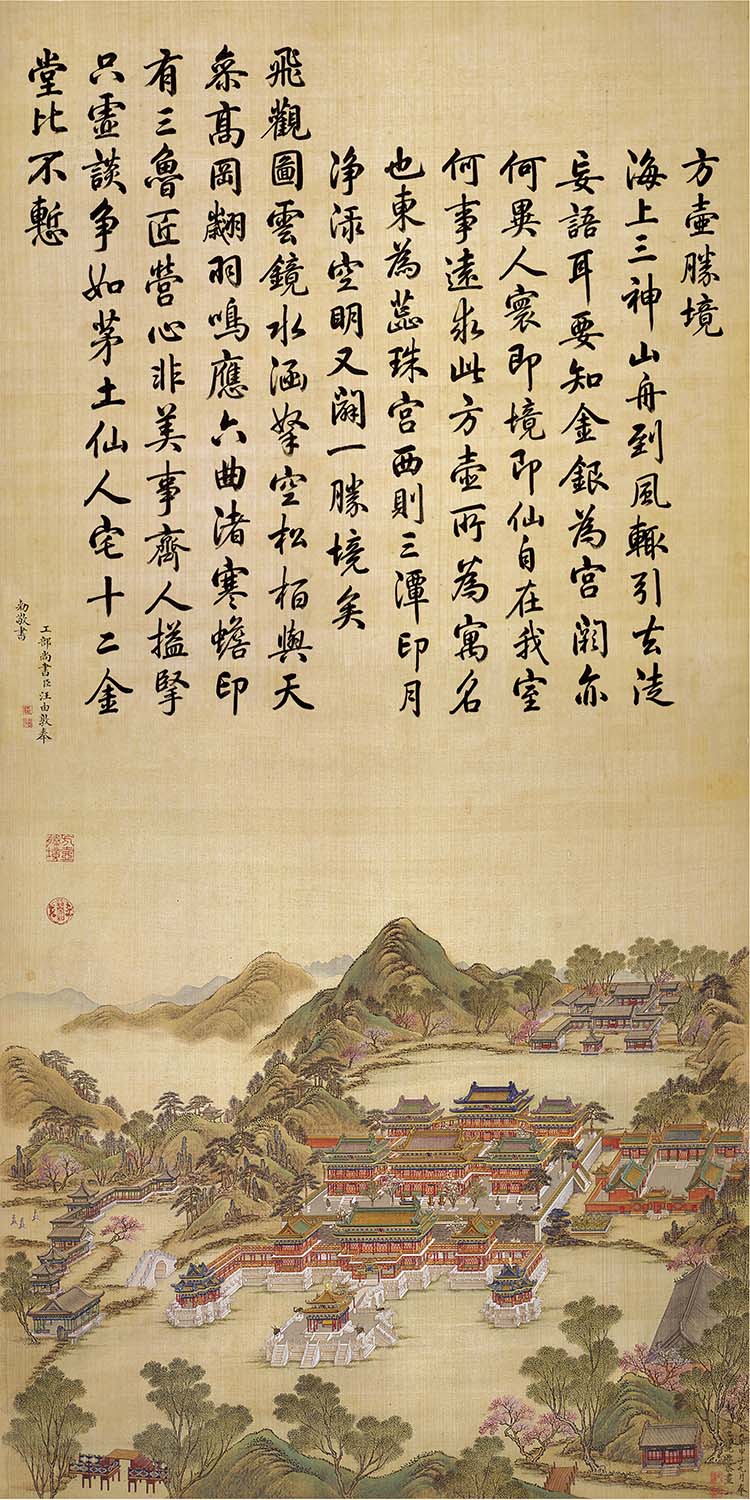 方壺勝境
海上三神山舟到風輒引去徒
妄語耳要知金銀為宮闕亦
何異人寰即境即仙自在我室
何事遠求此方壺所為寓名
也東為蕊珠宮西則三潭印月
净渌空明又闢一勝境矣
飛觀圖雲鏡水涵拏空松柏與天
叅髙岡翽羽鳴應六曲渚寒蟾印
有三魯匠營心非美事齊人搤掔
只虛談爭如茅土仙人宅十二金
堂比不慙
工部尚書臣汪由敦奉
勅敬書